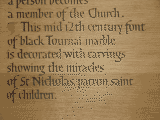 a person becomes
a member of the Church.
This mid 12th century font
of black Tournai marble
is decorated with carvings
showing the miracles
of St Nicholas, patron saint
of children.